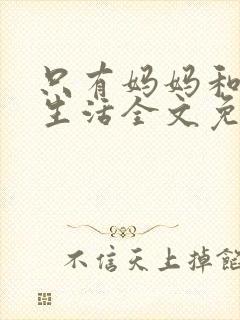 只有妈妈和
生活全文免
不信天上掉馅